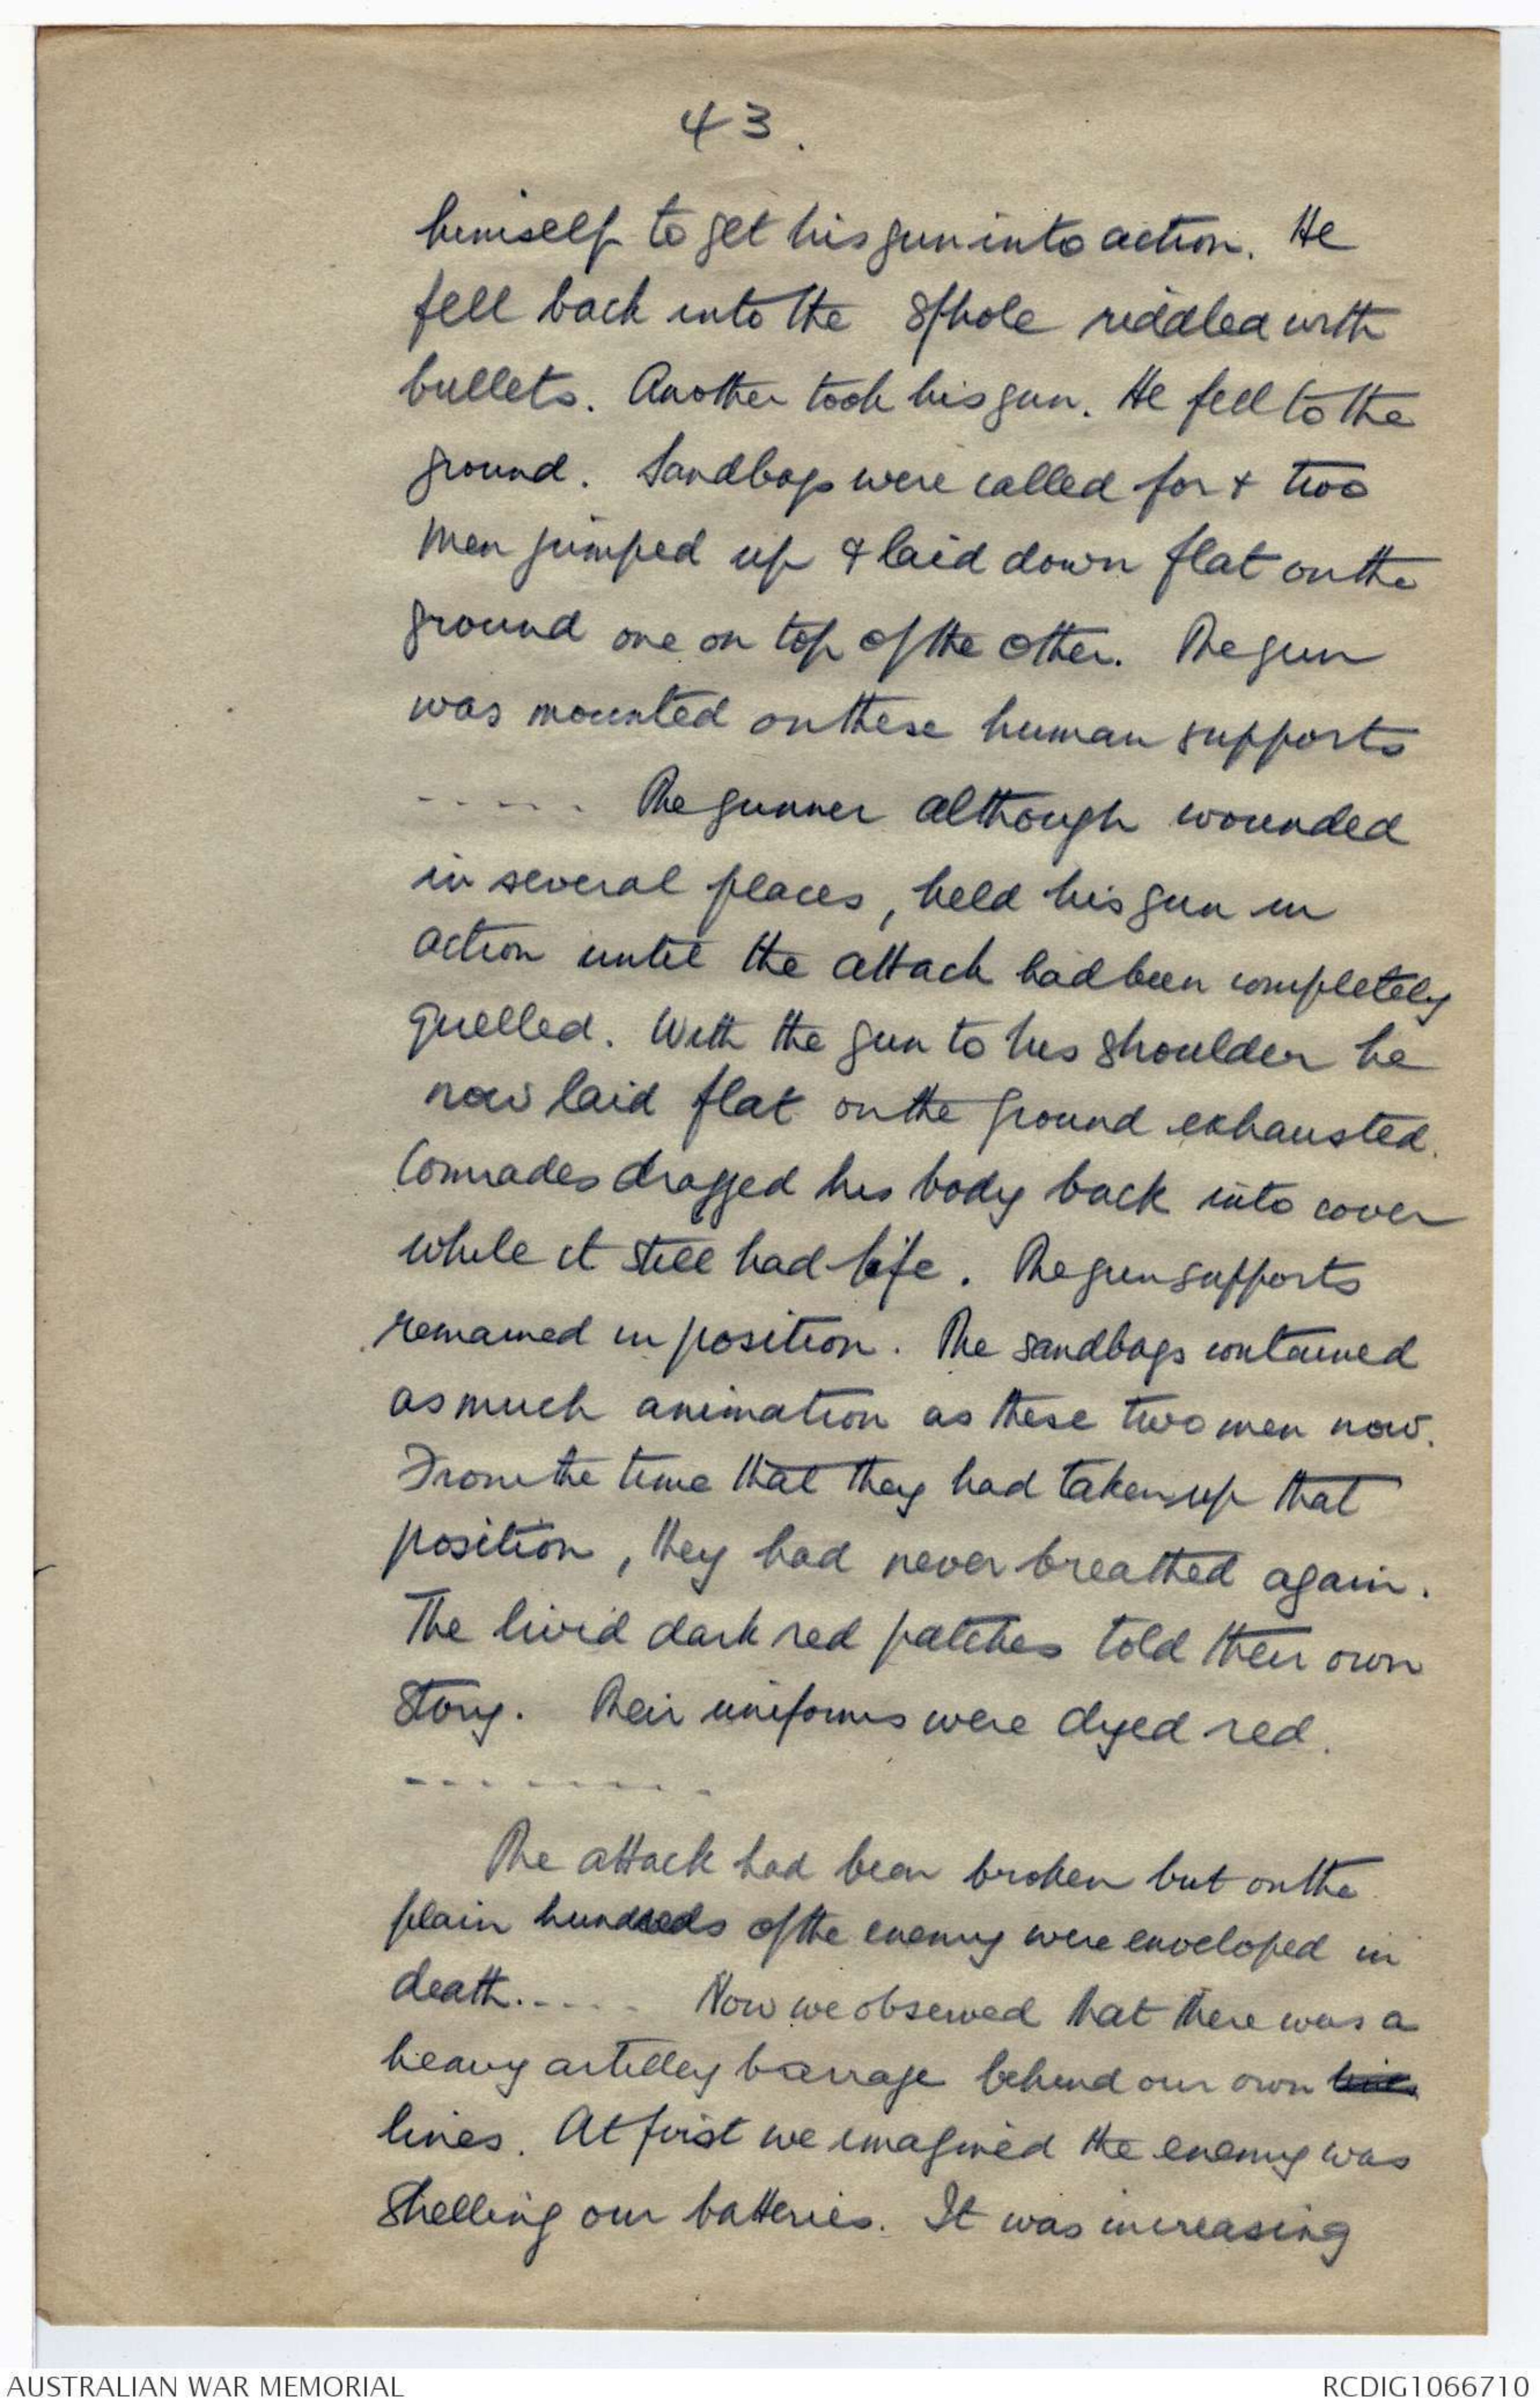 43.
himself to get his gun into action. He
fell back into the s/hole riddled with
bullets. Another took his gun. He fell to the
ground. Sandbags were called for & two
men jumped up & laid down flat on the
ground one on top of the other. The gun
was mounted on these human supports
..... The gunner although wounded
in several places, held his gun in
action until the attack had been completely
quelled. With the gun to his shoulder he
now laid flat on the ground exhausted.
Comrades dragged his body back into cover
while it still had life. The gun supports
remained in position. The sandbags contained
as much animation as these two men now.
From the time that they had taken up that
position, they had never breathed again.
The livid dark red patches told their own
story. Their uniforms were dyed red.
--------
The attack had been broken but on the
plain hundreds of the enemy were enveloped in
death..... Now we observed that there was a
heavy artillery barrage behind our own
lines. At first we imagined the enemy was
shelling our batteries. It was increasing
AUSTRALIAN WAR MEMORIAL
RCDIG1066710